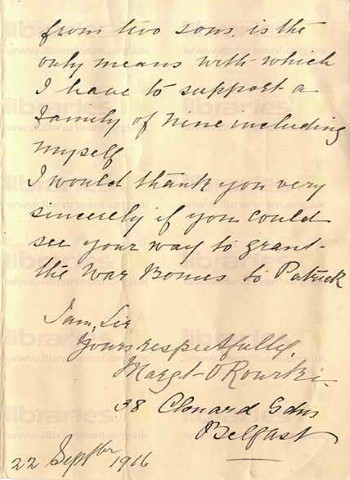 from two sons is the
only means with which
I have to support a
family of nine including
myself
I would thank you very
sincerely if you could
see your way to grant
the War Bonus to Patrick
I am, Sir
Yours respectfully,
Margt O'Rourke
38 Clonard Gdns
Belfast
22 Septbr 1916